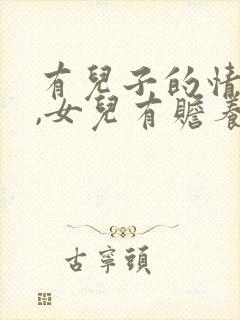 有兒子的情
,女兒有贍養
古寧頭